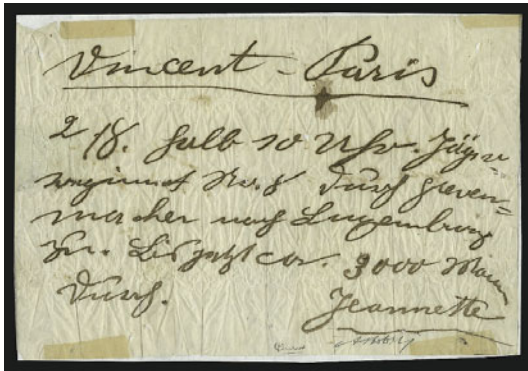 Vincent – Paris
2/8. halb 10 Uhr. Jäger=
regiment No. 8 durch Greven=
macher nach Luxemburg
zu. Bis jetzt ca. 3000 Mann
durch.
Jeannette